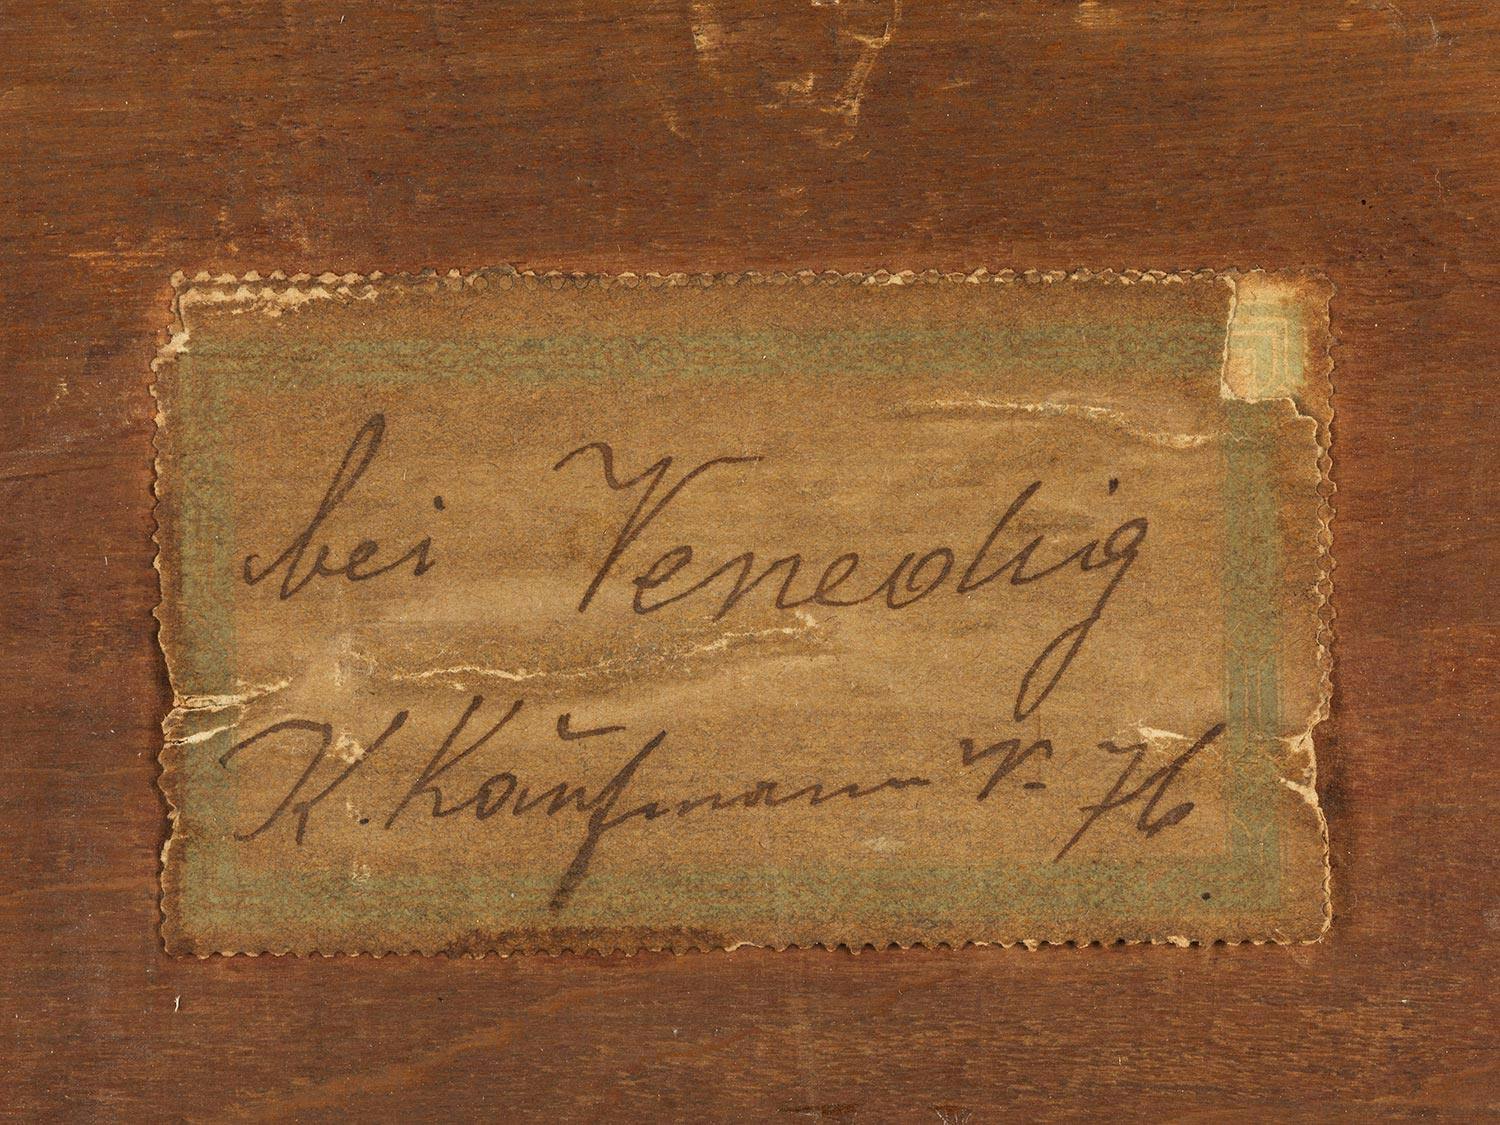 bei Venedig
K. Kaufmann W. 76